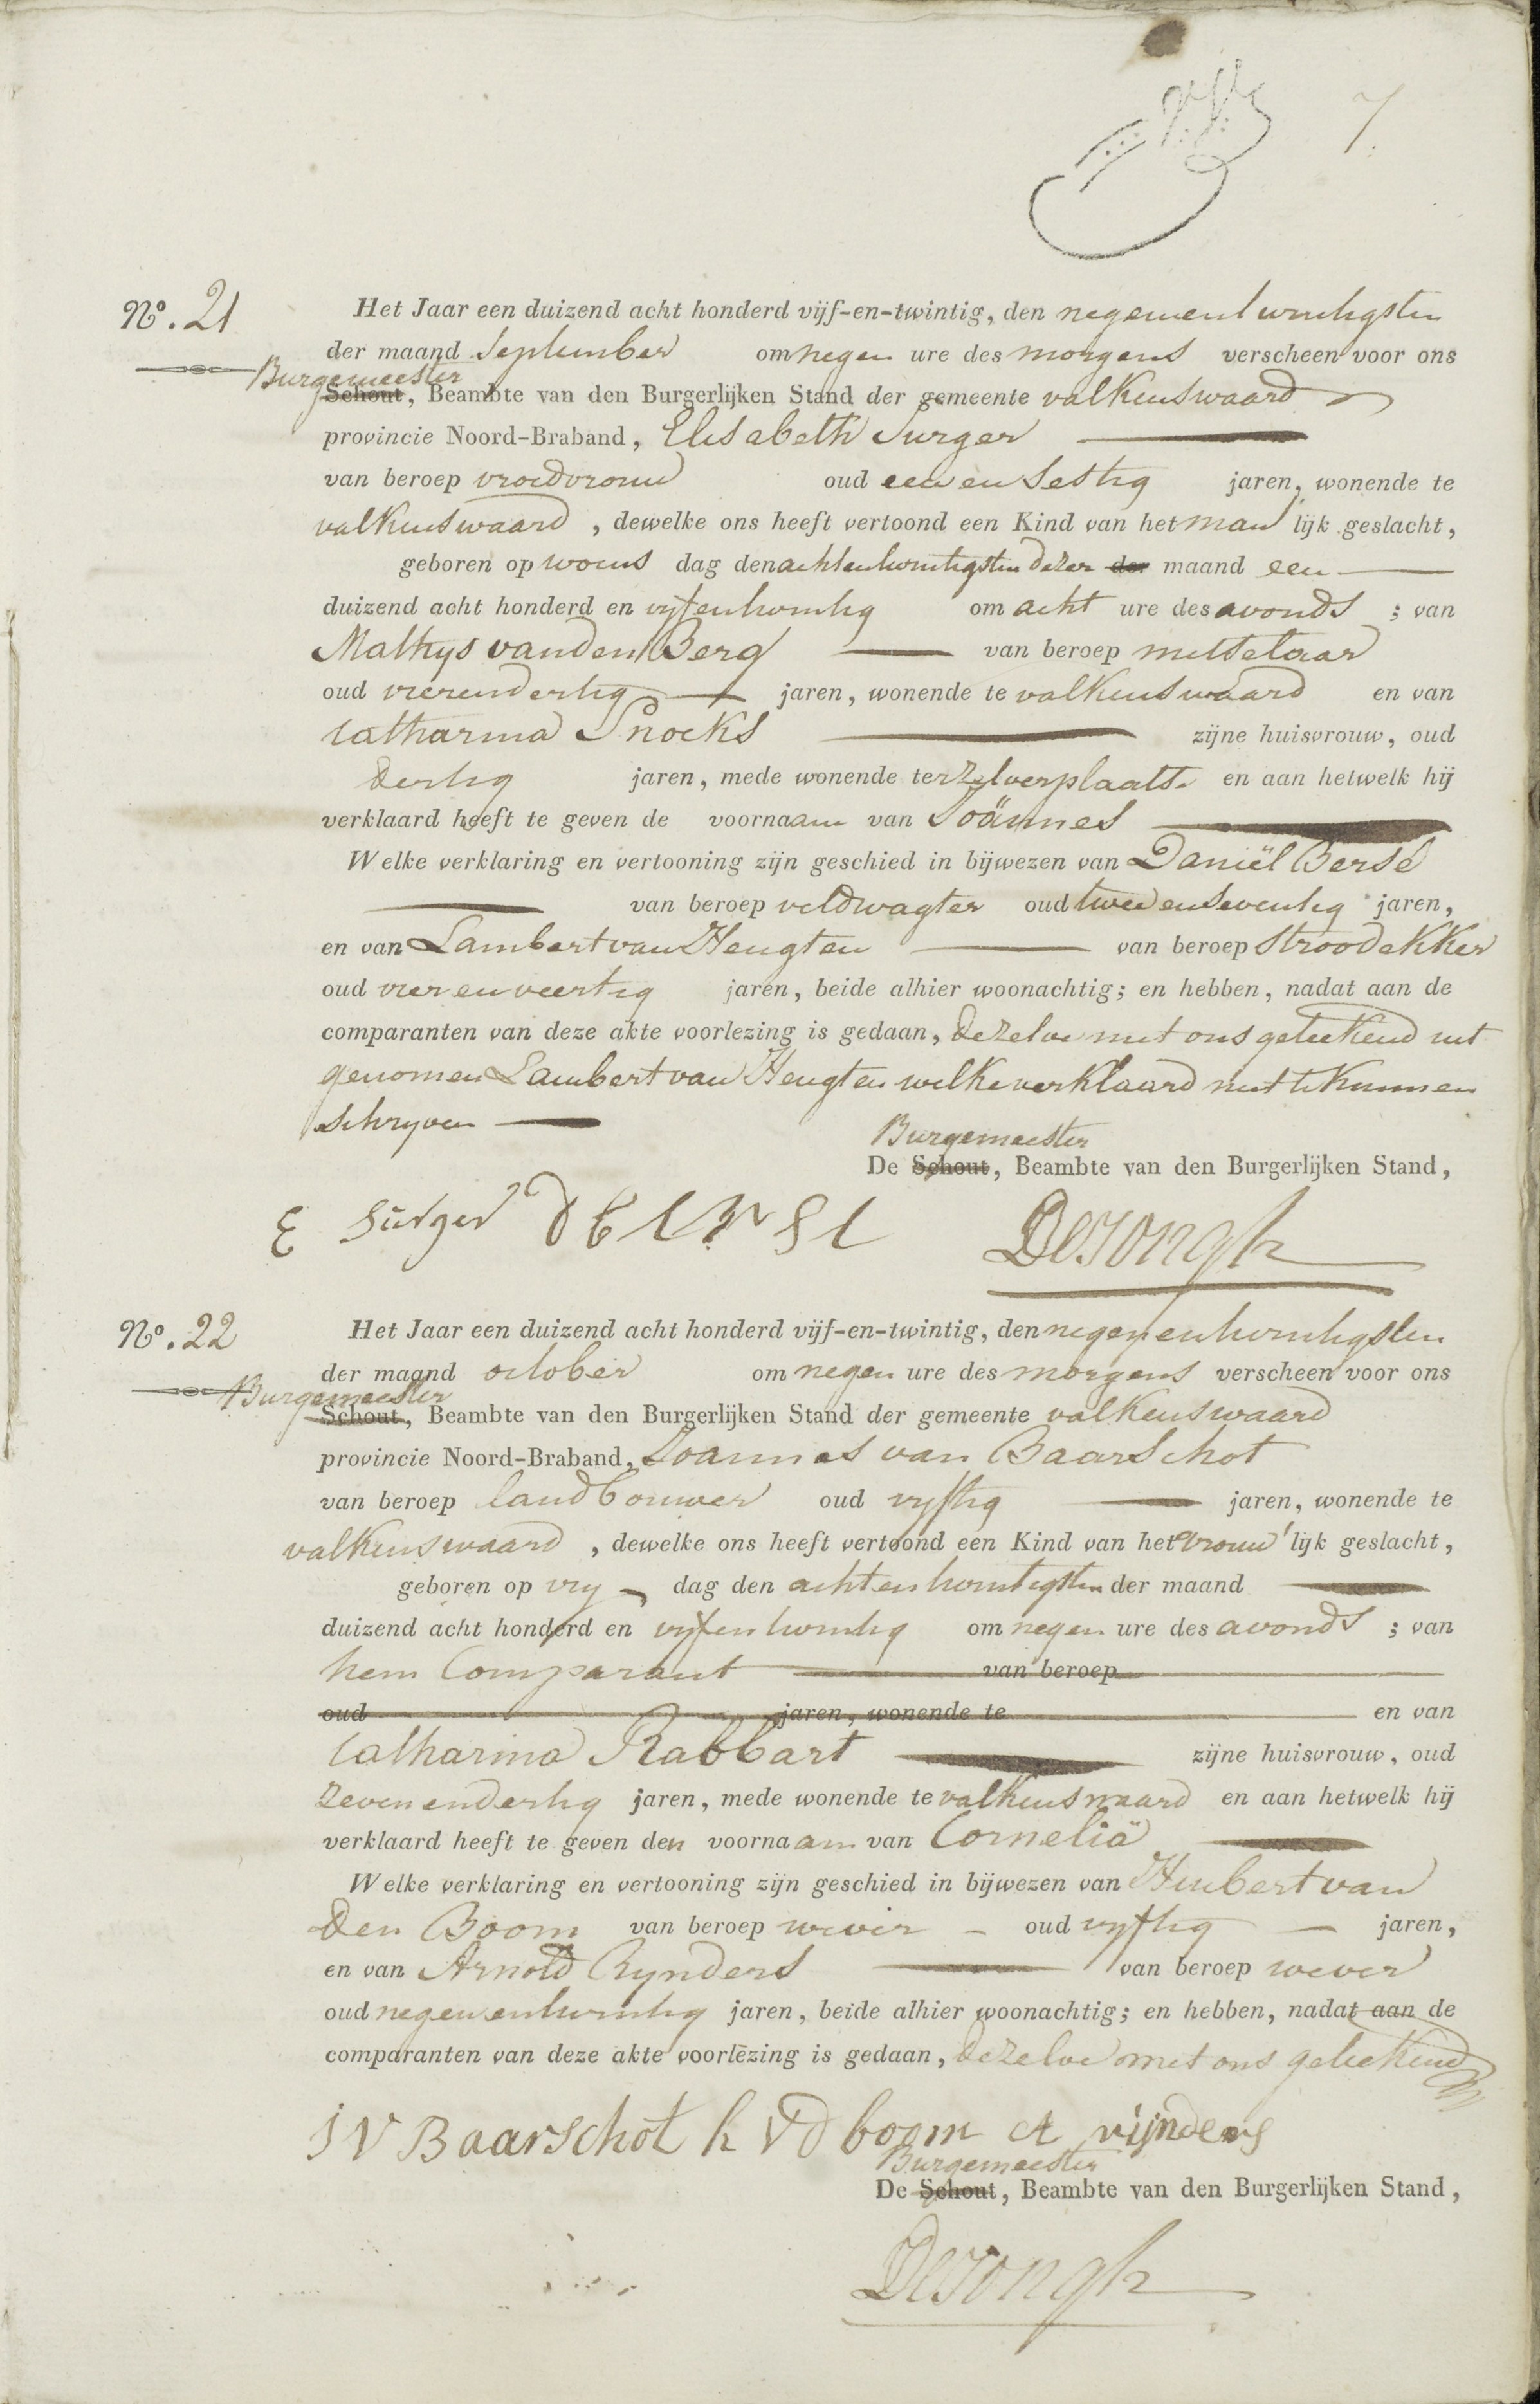 7.
No. 21
Het Jaar een duizend acht honderd vijf-en-twintig, den negenentwintigsten
der maand September om negen ure des morgens verscheen voor ons
Burgemeester
Schout, Beambte van den Burgerlijken Stand der gemeente valkenswaard
provincie Noord-Braband, Elisabeth Surger
van beroep vroedvrouw oud eenensestig jaren, wonende te
valkenswaard, dewelke ons heeft vertoond een Kind van het man lijk geslacht,
geboren op woens dag den achtentwintigsten dezer der maand een
duizend acht honderd en vyfentwintig om acht ure des avonds ; van
Mathys vanden Berg van beroep metselaar
oud vierendertig jaren, wonende te valkenswaard en van
Catharina Snoeks zijne huisvrouw, oud
dertig jaren, mede wonende ter zelverplaatse en aan hetwelk hij
verklaard heeft te geven de voornaam van Joännes
Welke verklaring en vertooning zijn geschied in bijwezen van Daniël Bersé
van beroep veldwagter oud tweeenseventig jaren,
en van Lambert van Hengten van beroep stroodekker
oud vierenveertig jaren, beide alhier woonachtig; en hebben, nadat aan de
comparanten van deze akte voorlezing is gedaan, dezelve met ons geteekend uit
genomen Lambert van Hengten welke verklaard niet te kunnen
schryven
Burgemeester
De Schout, Beambte van den Burgerlijken Stand,
E Surger Dejongh
No. 22
Het Jaar een duizend acht honderd vijf-en-twintig, den negenentwintigsten
der maand october om negen ure des morgens verscheen voor ons
Burgemeester
Schout, Beambte van den Burgerlijken Stand der gemeente valkenswaard
provincie Noord-Braband, Joannes van Baarschot
van beroep landbouwer oud vyftig jaren, wonende te
valkenswaard, dewelke ons heeft vertoond een Kind van het vrouw lijk geslacht,
geboren op vry dag den achtentwintigsten der maand
duizend acht honderd en vyfentwintig om negen ure des avonds ; van
hem Comparant van beroep
oud jaren, wonende te en van
Catharina Rabbart zijne huisvrouw, oud
zevenendertig jaren, mede wonende te valkenswaard en aan hetwelk hij
verklaard heeft te geven den voornaam van Cornelia
Welke verklaring en vertooning zijn geschied in bijwezen van Huibert van
den Boom van beroep wever oud vyftig jaren,
en van Arnold Rynders van beroep wever
oud negenentwintig jaren, beide alhier woonachtig; en hebben, nadat aan de
comparanten van deze akte voorlezing is gedaan, dezelve met ons geteekend
J V Baarschot h vd boom A rijnders
Burgemeester
De Schout, Beambte van den Burgerlijken Stand,
Dejongh